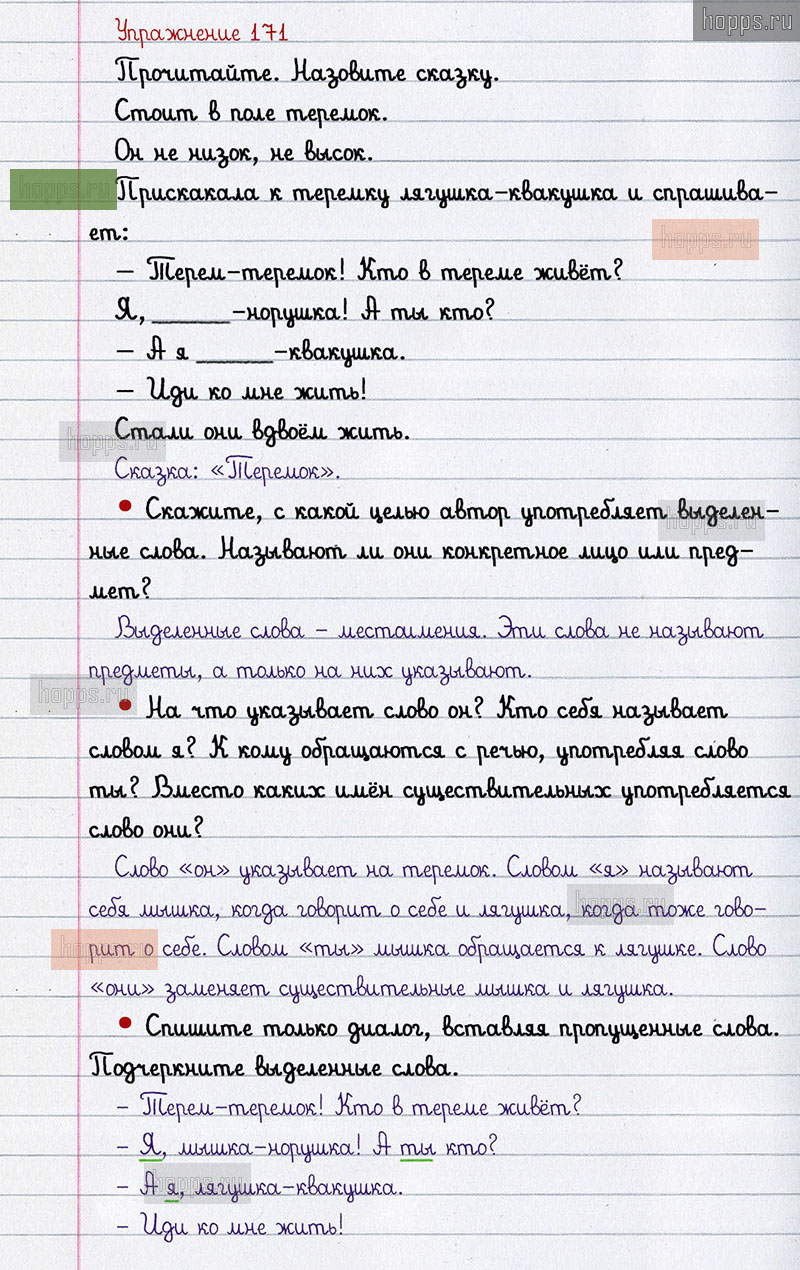 hopps.ru
Упражнение 171
Прочитайте. Назовите сказку.
Стоит в поле теремок.
Он не низок, не высок.
hopps.ru
Прискакала к теремку лягушка-квакушка и спрашива-
ет:
hopps.ru
– Терем-теремок! Кто в тереме живёт?
Я, ______-норушка! А ты кто?
– А я ______-квакушка.
– Иди ко мне жить!
hopps.ru
Стали они вдвоём жить.
Сказка: «Теремок».
• Скажите, с какой целью автор употребляет выделен-
hopps.ru
ные слова. Называют ли они конкретное лицо или пред-
мет?
Выделенные слова – местоимения. Эти слова не называют
предметы, а только на них указывают.
hopps.ru
• На что указывает слово он? Кто себя называет
словом я? К кому обращаются с речью, употребляя слово
ты? Вместо каких имён существительных употребляется
слово они?
Слово «он» указывает на теремок. Словом «я» называют
себя мышка, когда говорит о себе и лягушка, когда тоже гово-
hopps.ru
рит о себе. Словом «ты» мышка обращается к лягушке. Слово
hopps.ru
«они» заменяет существительные мышка и лягушка.
• Спишите только диалог, вставляя пропущенные слова.
Подчеркните выделенные слова.
– Терем-теремок! Кто в тереме живёт?
– Я, мышка-норушка! А ты кто?
– А я, лягушка-квакушка.
hopps.ru
– Иди ко мне жить!